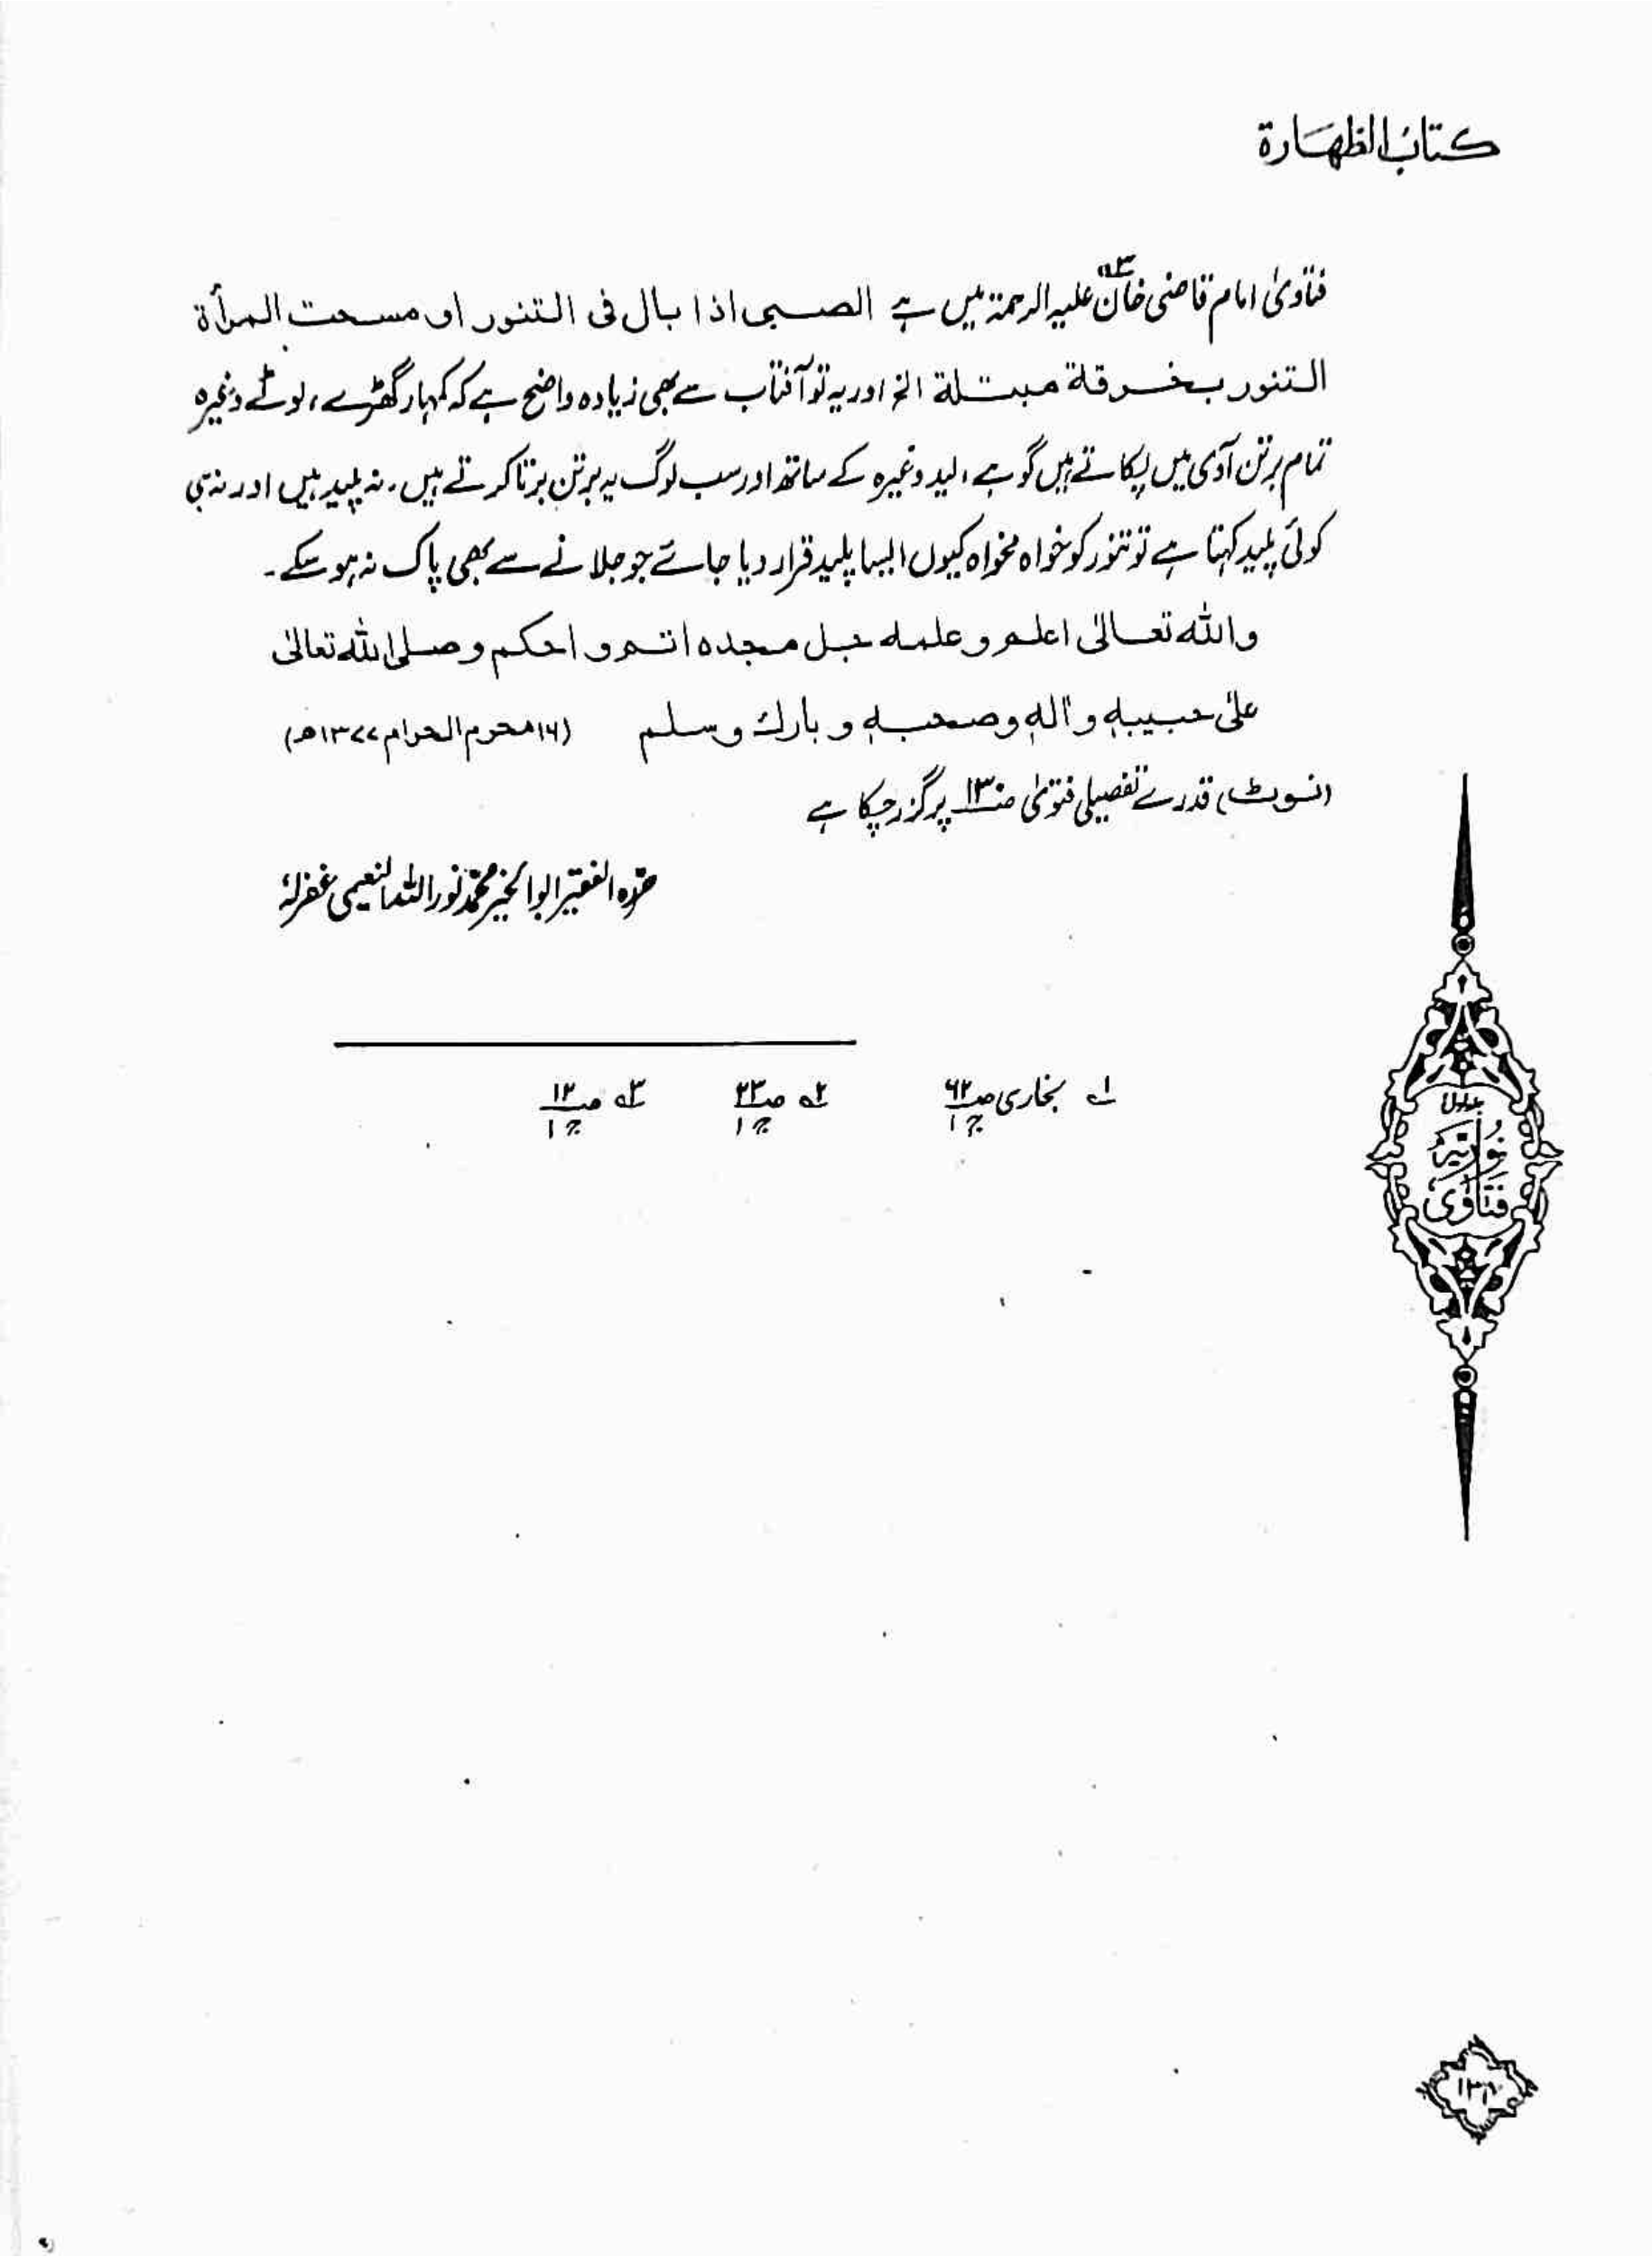 کتابُ الطهَارة
فتاویٰ امام قاضی خان۳ علیہ الرحمۃ میں ہے الصبی اذا بال فی التنور او مسحت المرأة
التنور بخرقة مبتلة الخ اور یہ تو آفتاب سے بھی زیادہ واضح ہے کہ کمہار گھڑے، لوٹے وغیرہ
تمام برتن آوی میں پکاتے ہیں گوہے، لید وغیرہ کے ساتھ اور سب لوگ یہ برتن برتا کرتے ہیں، نہ پلید ہیں اور نہ ہی
کوئی پلید کہتا ہے تو تنور کو خواہ مخواہ کیوں ایسا پلید قرار دیا جائے جو جلانے سے بھی پاک نہ ہو سکے۔
والله تعالیٰ اعلم و علمه جل مجده اتم و احکم وصلی الله تعالیٰ
علیٰ حبیبہٖ واٰلہٖ وصحبہٖ و بارك وسلم (۱۶ محرم الحرام ۱۳۷۷ھ)
(نوٹ) قدرے تفصیلی فتویٰ صـ۱۳ پر گزر چکا ہے
حرّرہ الفقیر ابوالخیر محمد نور اللہ النعیمی غفرلہٗ
۱ بخاری صـ۶۲ ج۱ ۲ صـ۲۳ ج۱ ۳ صـ۱۲ ج۱
جلد اول
نُوریَہ
فتَاوٰی